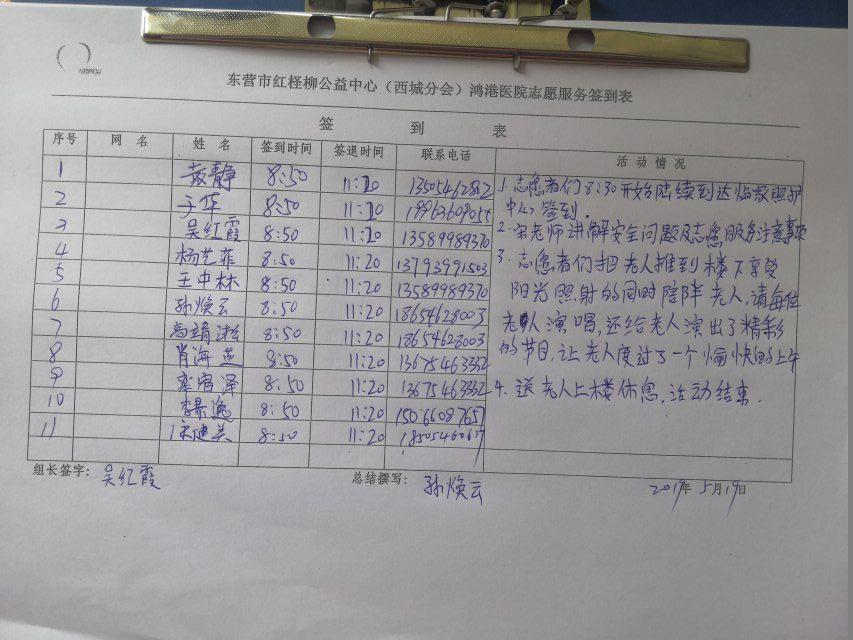 东营市红柽柳公益中心（西城分会）鸿港医院志愿服务签到表
签 到 表
序号 网 名 姓 名 签到时间 签退时间 联系电话 活 动 情 况
1 袁静 8:50 11:20 13505462862
2 于华 8:50 11:20
3 吴红霞 8:50 11:20 13589989370
4 杨艺菲 8:50 11:20 13793991503
5 王中林 8:50 11:20 13589989370
6 孙焕云 8:50 11:20 18654628003
7 高靖淞 8:50 11:20 18654628003
8 肖海燕 8:50 11:20 13675463332
9 泽 8:50 11:20 13675463332
10 李景逸 8:50 11:20 15066087651
11 宋建美 8:50 11:20 18505460617
1. 志愿者们8:30开始陆续到达临家照护
中心，签到.
2. 宋老师讲解安全问题及志愿服务注意事项
3. 志愿者们把老人推到楼下享受
阳光照射的同时陪伴老人,请每位
老人演唱,还给老人演出了精彩
的节目,让老人度过了一个愉快的上午
4. 送老人上楼休息,活动结束.
组长签字: 吴红霞 总结撰写: 孙焕云 2019年5月19日